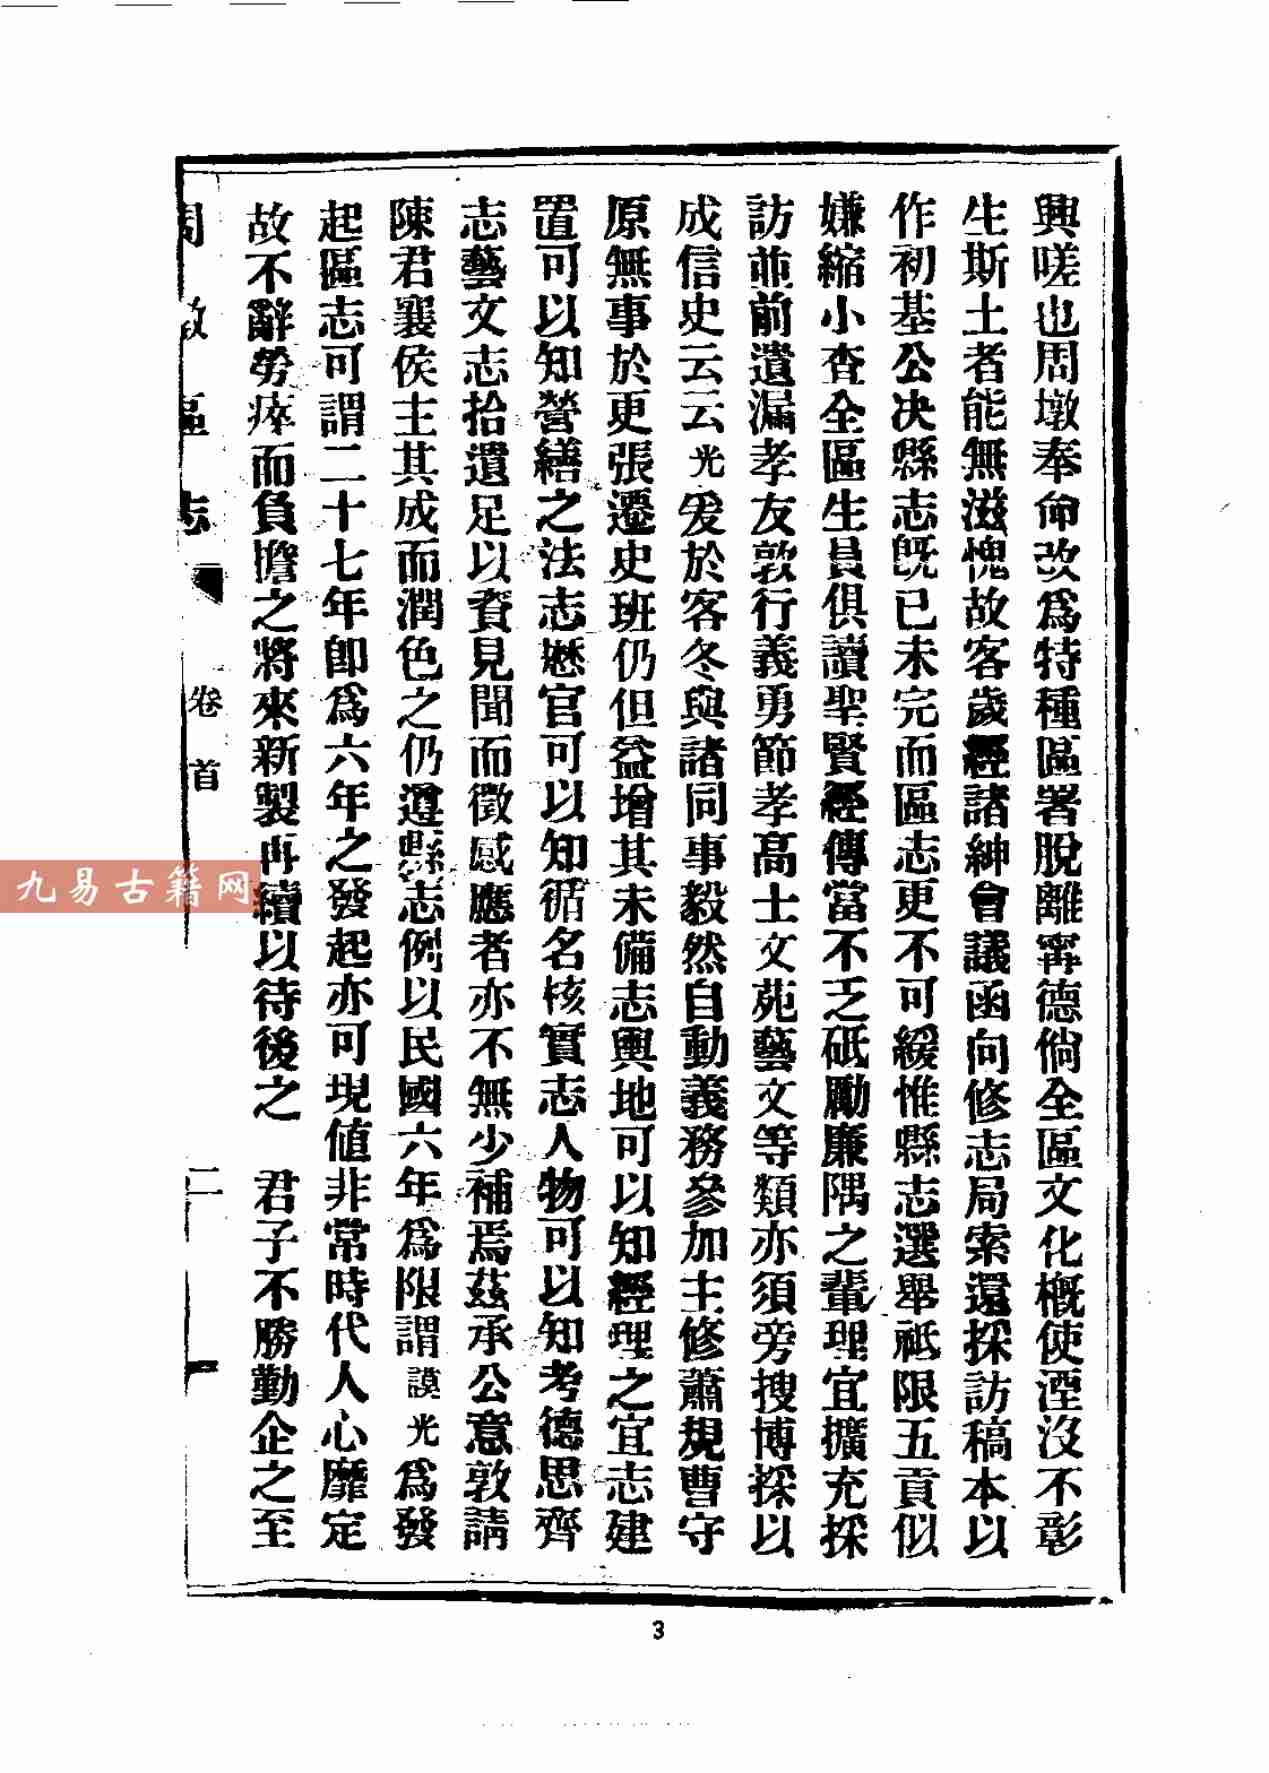 興嗟也周墩奉命改為特種區署脫離寗德倘全區文化槪使湮沒不彰
生斯土者能無滋愧故客歲經諸紳會議函向修志局索還採訪稿本以
作初基公决縣志旣已未完而區志更不可緩惟縣志選舉祗限五貢似
嫌縮小查全區生員俱讀聖賢經傳當不乏砥勵廉隅之輩理宜擴充採
訪並前遺漏孝友敦行義勇節孝高士文苑藝文等類亦須旁搜博採以
成信史云云光爰於客冬與諸同事毅然自動義務參加主修蕭規曹守
原無事於更張遷史班仍但益增其未備志輿地可以知經理之宜志建
置可以知營繕之法志歷官可以知循名核實志人物可以知考德思齊
志藝文志拾遺足以資見聞而徵感應者亦不無少補焉茲承公意敦請
陳君襄侯主其成而潤色之仍遵縣志例以民國六年為限謂謨光為發
起區志可謂二十七年卽為六年之發起亦可現值非常時代人心靡定
故不辭勞瘁而負擔之將來新製再續以待後之 君子不勝勤企之至
周墩區志 卷首 二
九易古籍网
3